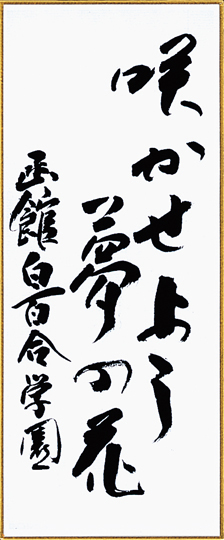 咲かせよう
夢の花
函館白百合学園